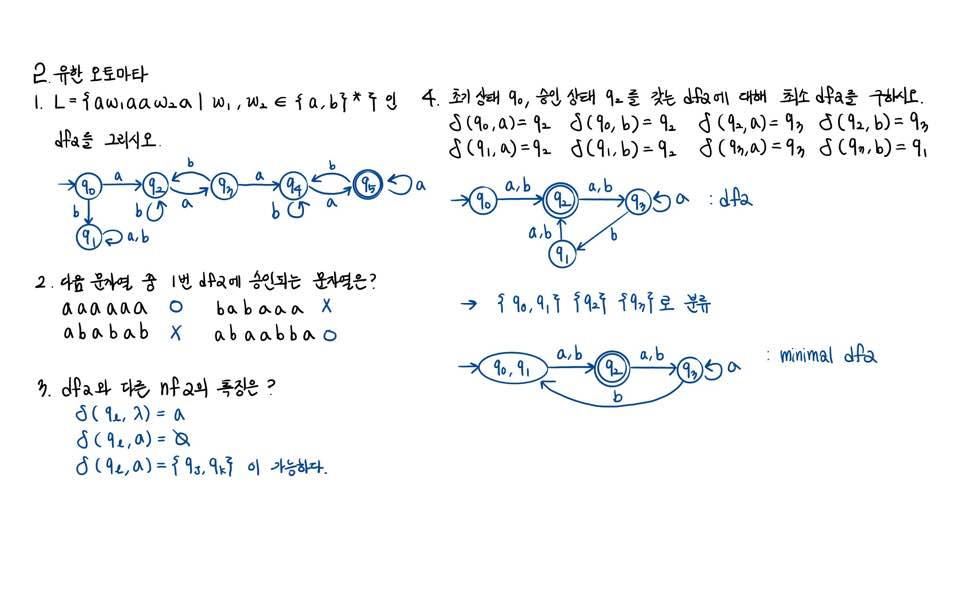 2. 유한 오토마타
1. L = {aw₁aaw₂a | w₁, w₂ ∈ {a,b}*} 인
dfa를 그리시오.
q₀ a q₂ b a q₃ a q₄ b a q₅ a
b b b
q₁ a,b
2. 다음 문자열 중 1번 dfa에 승인되는 문자열은?
aaaaaa O babaaa X
ababab X abaabba O
3. dfa와 다른 nfa의 특징은?
δ(qᵢ, λ) = a
δ(qᵢ, a) = ∅
δ(qᵢ, a) = {qⱼ, qₖ} 이 가능하다.
4. 초기 상태 q₀, 승인 상태 q₂를 갖는 dfa에 대해 최소 dfa를 구하시오.
δ(q₀,a) = q₂ δ(q₀,b) = q₂ δ(q₂,a) = q₃ δ(q₂,b) = q₃
δ(q₁,a) = q₂ δ(q₁,b) = q₂ δ(q₃,a) = q₃ δ(q₃,b) = q₁
q₀ a,b q₂ a,b q₃ a : dfa
a,b b
q₁
→ {q₀,q₁} {q₂} {q₃}로 분류
q₀, q₁ a,b q₂ a,b q₃ a : minimal dfa
b